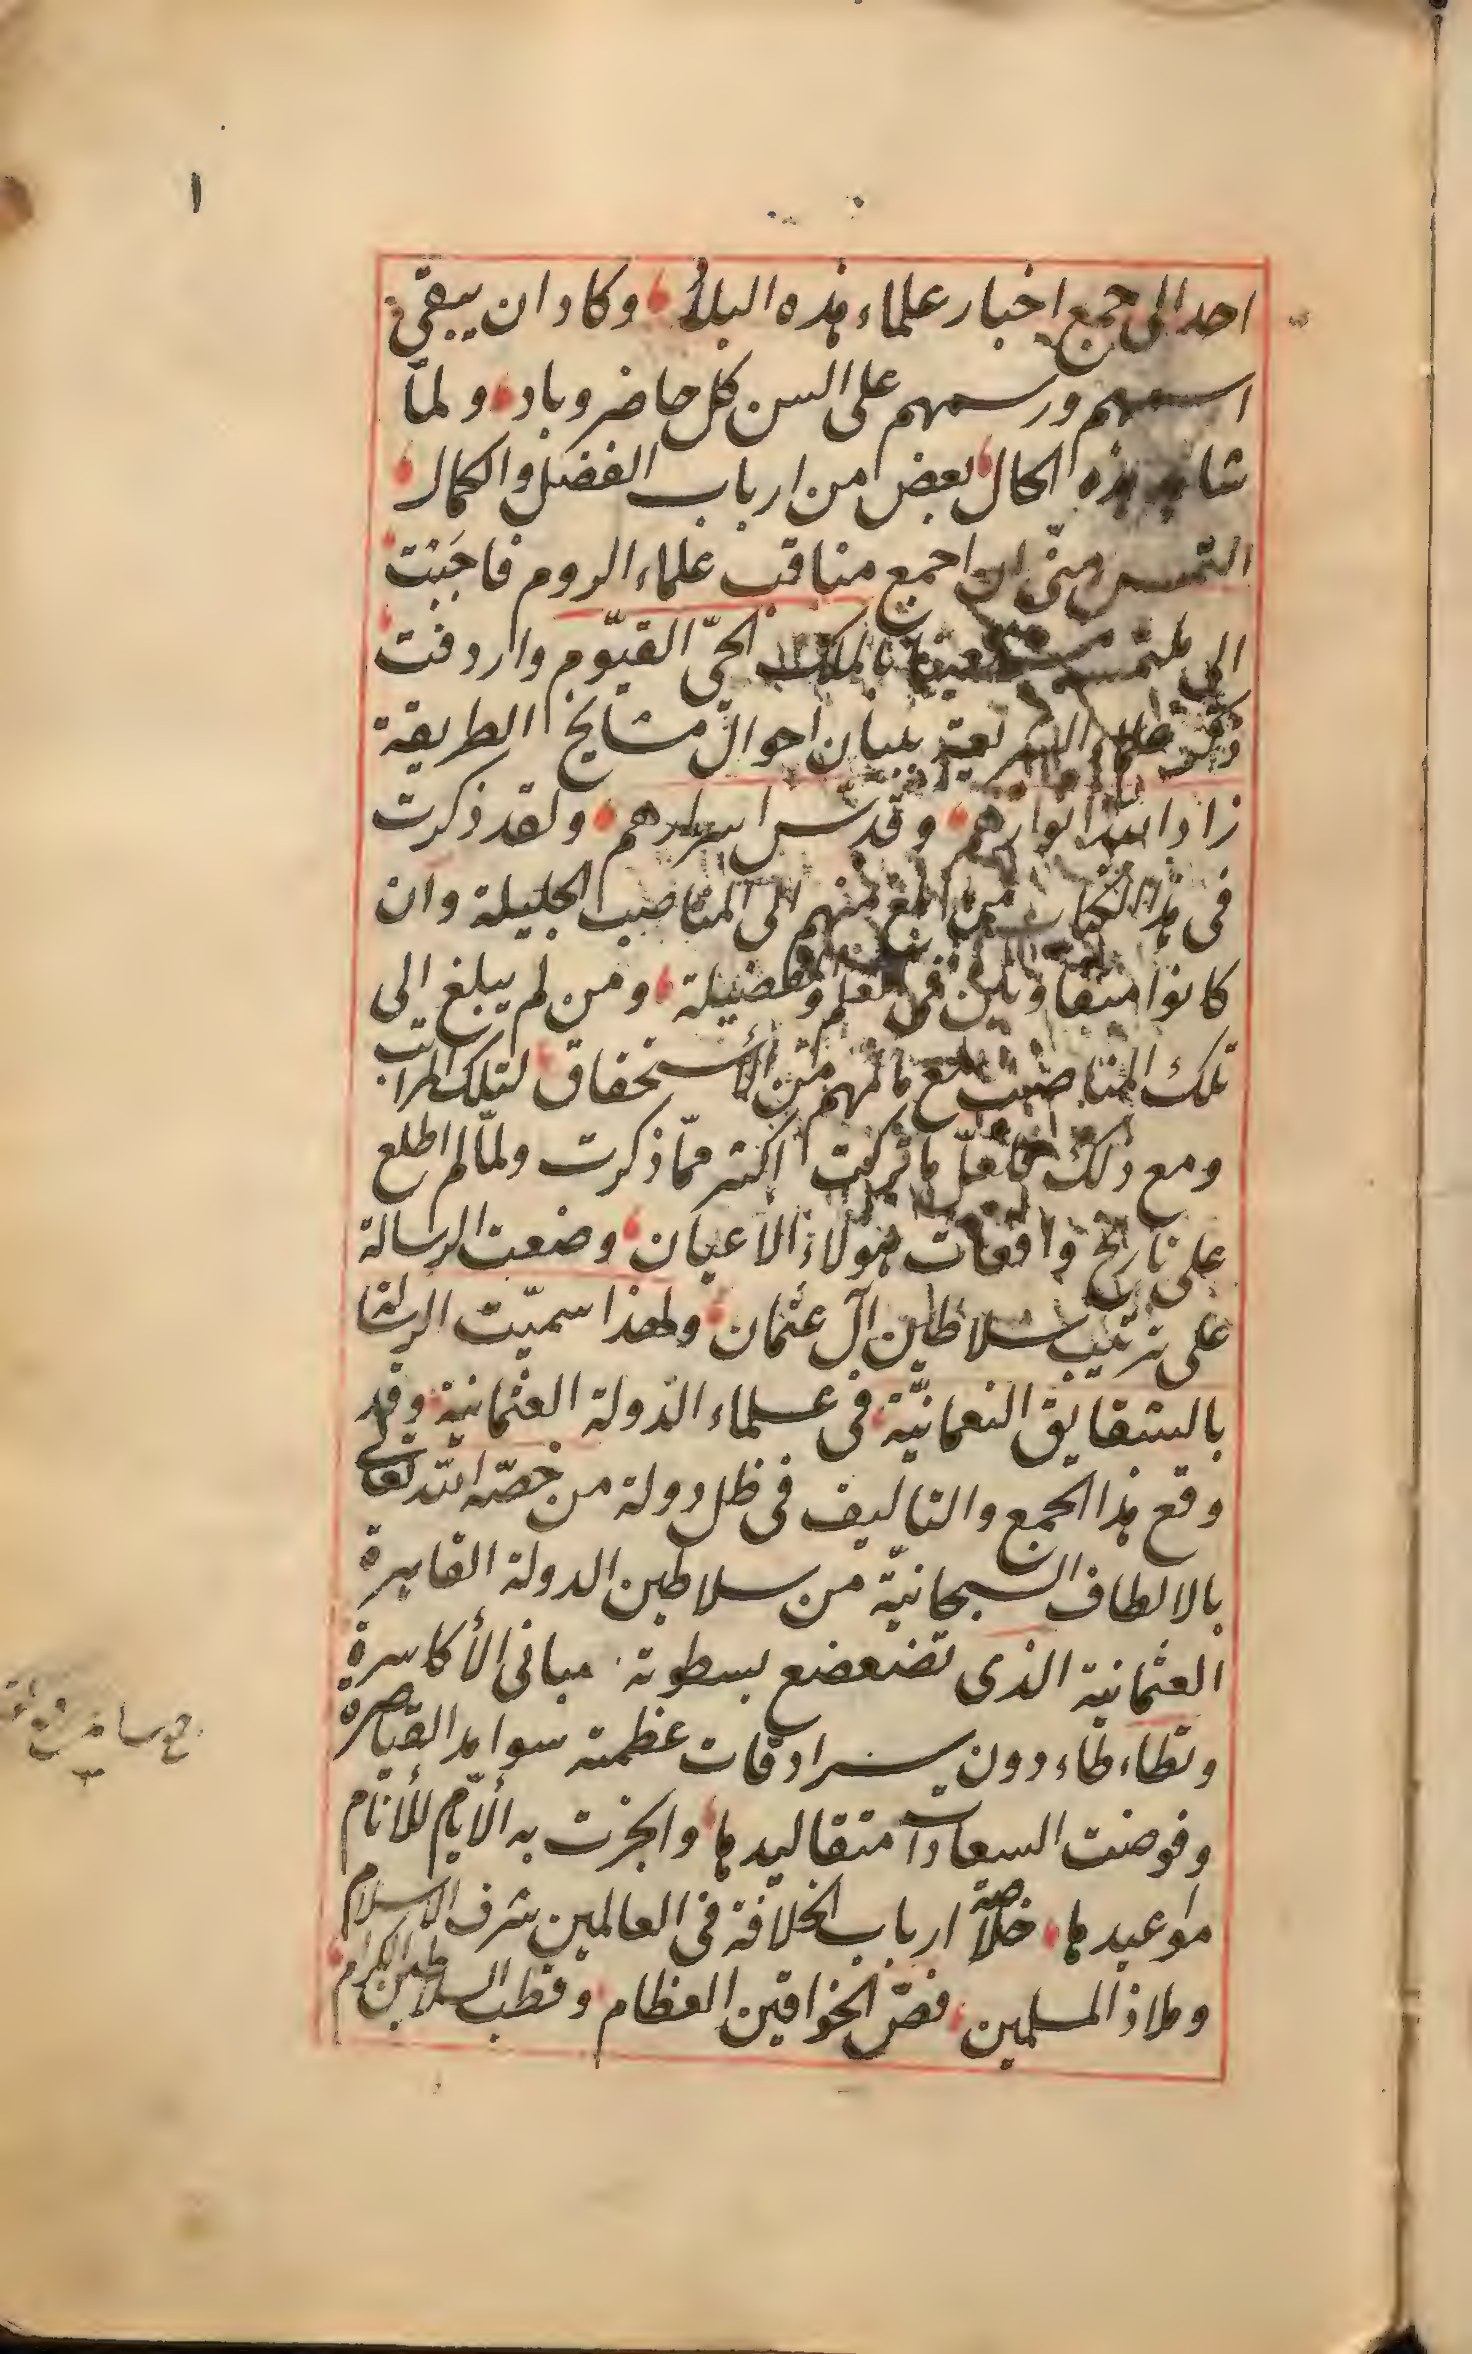 ١
احد الى جمع اخبار علماء هذه البلاد وكاد ان يبقى
اسمهم ورسمهم على السن كل حاضر وباد ولمّا
شاهد هذه الحال بعض من ارباب الفضل والكمال
التمس منّى ان اجمع مناقب علماء الروم فاجَبْت
الى ملتمسه مستعينا بالملك الحىّ القيّوم واردفت
ذكر علماء الشريعة ببيان احوال مشايخ الطريقة
زاد الله انوارهم وقدّس اسرارهم ولقد ذكرت
فى هذا الكتاب من بلغ منهم الى المناصب الجليلة وان
كانوا متفاوتين فى العلم والفضيلة ومن لم يبلغ الى
تلك المناصب مع مالهم من الأستحقاق لتلك المراتب
ومع ذلك فلعلّ ما تركت اكثر ممّا ذكرت ولمّا لم اطلع
على تاريخ واقعات هؤلاء الاعيان وضعت الرسالة
على ترتيب سلاطين آل عثمان ولهذا سميّت الرسالة
بالشقايق النعمانيّة فى علماء الدّولة العثمانية وقد
وقع هذا الجمع والتاليف فى ظل دولة من خصّه الله تعالى
بالالطاف السبحانيّة من سلاطين الدولة القاهرة
العثمانية الذى تضعضع بسطوته مبانى الأكاسرة
وتطاءطاء دون سرادقات عظمته سوامد القياصرة
وفوضت السعادات مقاليدها وانجزت به الأيّام للأنام
مواعيدها خلاصة ارباب الخلافة فى العالمين شرف الاسلام
وملاذ المسلمين فصّ الخواقين العظام وقطب السلاطين الكرام